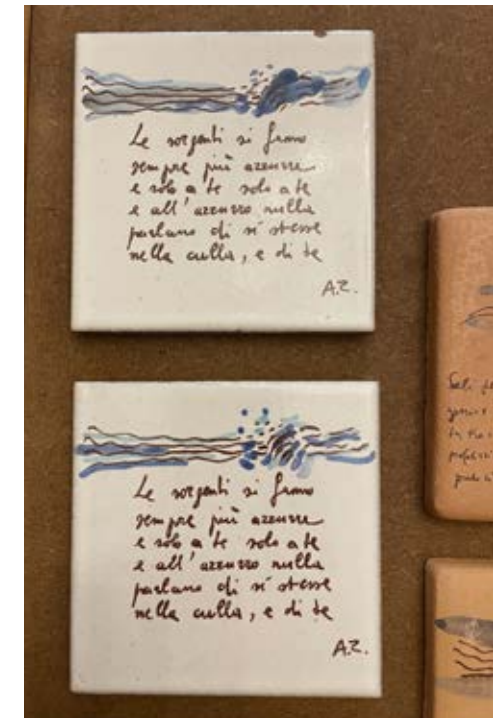 Le sorgenti si fanno
sempre più azzurre
e solo a te solo a te
e all'azzurro nulla
parlano di sé stesse
nella culla, e di te
A.Z.
Le sorgenti si fanno
sempre più azzurre
e solo a te solo a te
e all'azzurro nulla
parlano di sé stesse
nella culla, e di te
A.Z.